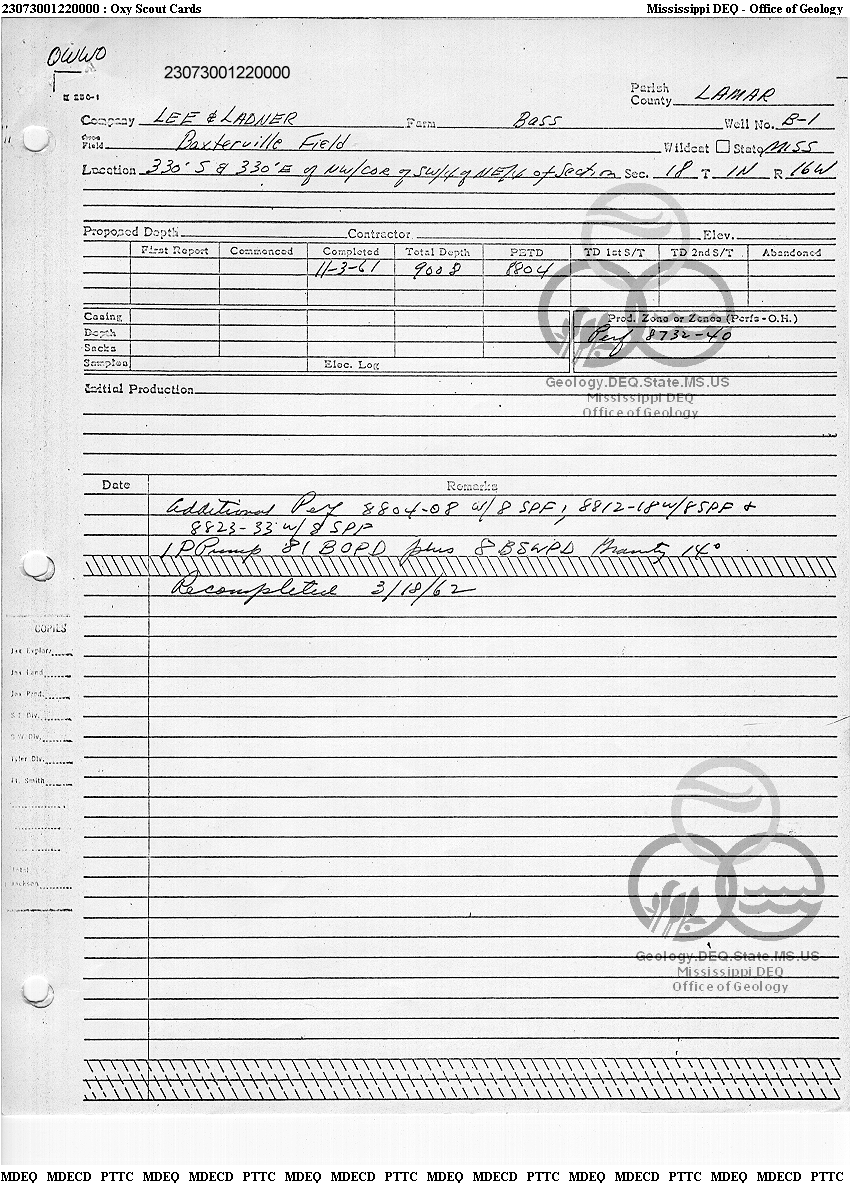 23073001220000 : Oxy Scout Cards Mississippi DEQ - Office of Geology
OWWO
23073001220000
Parish
County LAMAR
Company LEE & LADNER Farm Bass Well No. B-1
Field Baxterville Field Wildcat State MISS
Location 330' S & 330' E of NW/COR of SW/4 of NE/4 of Section Sec. 18 T 1N R 16W
Proposed Depth Contractor Elev.
First Report Commenced Completed Total Depth PBTD TD 1st S/T TD 2nd S/T Abandoned
11-3-61 9008 8804
Casing Prod. Zone or Zones (Perfs - O.H.)
Depth Perf 8732-40
Sacks
Samples Elec. Log
Geology.DEQ.State.MS.US
Initial Production
Mississippi DEQ
Office of Geology
Date Remarks
Additional Perf 8804-08 w/8 SPF, 8812-18 w/8SPF &
8823-33 w/8 SPF
IP Pump 81 BOPD plus 8 BSWPD Gravity 14°
Recompleted 3/18/62
COPIES
Jax Explor.
Jax Land
Jax Prod.
S.W. Div.
Tyler Div.
Smith
Total
Jackson
Geology.DEQ.State.MS.US
Mississippi DEQ
Office of Geology
MDEQ MDECD PTTC MDEQ MDECD PTTC MDEQ MDECD PTTC MDEQ MDECD PTTC MDEQ MDECD PTTC MDEQ MDECD PTTC